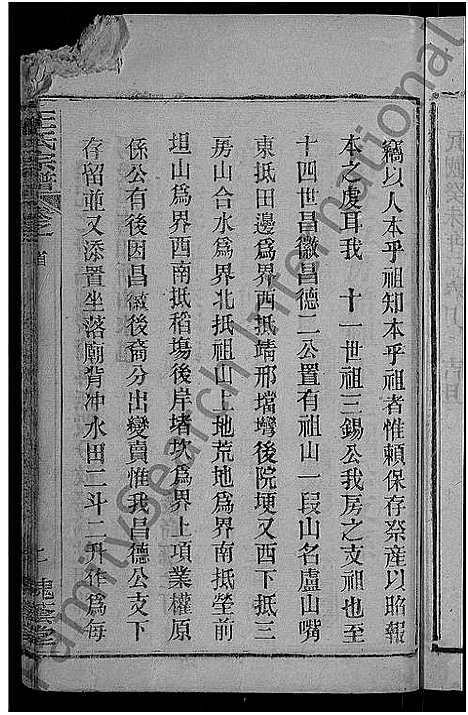 竊以人本乎祖知本乎祖者惟賴保存祭產以昭報
本之虔耳我　十一世祖三錫公我房之支祖也至
十四世昌徽昌德二公置有祖山一段山名盧山嘴
東抵田邊爲界西抵靖邢壋壪後院埂又西下抵三
房山合水爲界北抵祖山上地荒地爲界南抵塋前
坦山爲界西南抵稻塲後岸堵坎爲界上項業權原
係公有後因昌徽後裔分出變賣惟我昌德公支下
存留並又添置坐落廟背冲水田二斗二升作爲每
王氏宗譜
卷之首
槐蔭堂
FamilySearch International